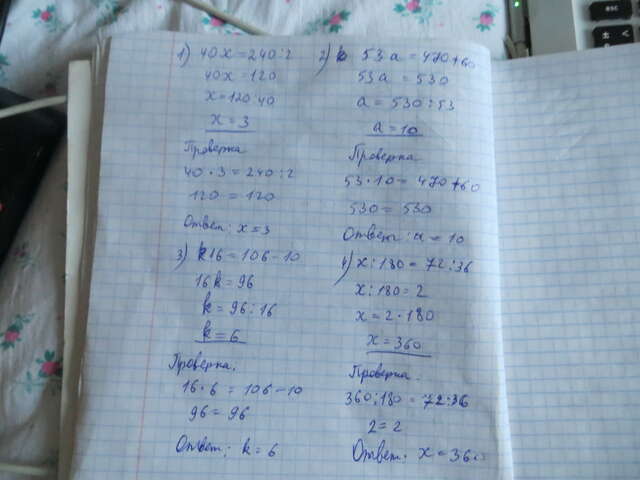 1) 40x = 240:2
40x = 120
x = 120:40
x = 3
Проверка
40 · 3 = 240:2
120 = 120
Ответ: x = 3
2) 53a = 470+60
53a = 530
a = 530:53
a = 10
Проверка
53 · 10 = 470+60
530 = 530
Ответ: a = 10
3) k16 = 106-10
16k = 96
k = 96:16
k = 6
Проверка.
16 · 6 = 106-10
96 = 96
Ответ: k = 6
4) x:180 = 72:36
x:180 = 2
x = 2 · 180
x = 360
Проверка.
360:180 = 72:36
2 = 2
Ответ. x = 360
esc